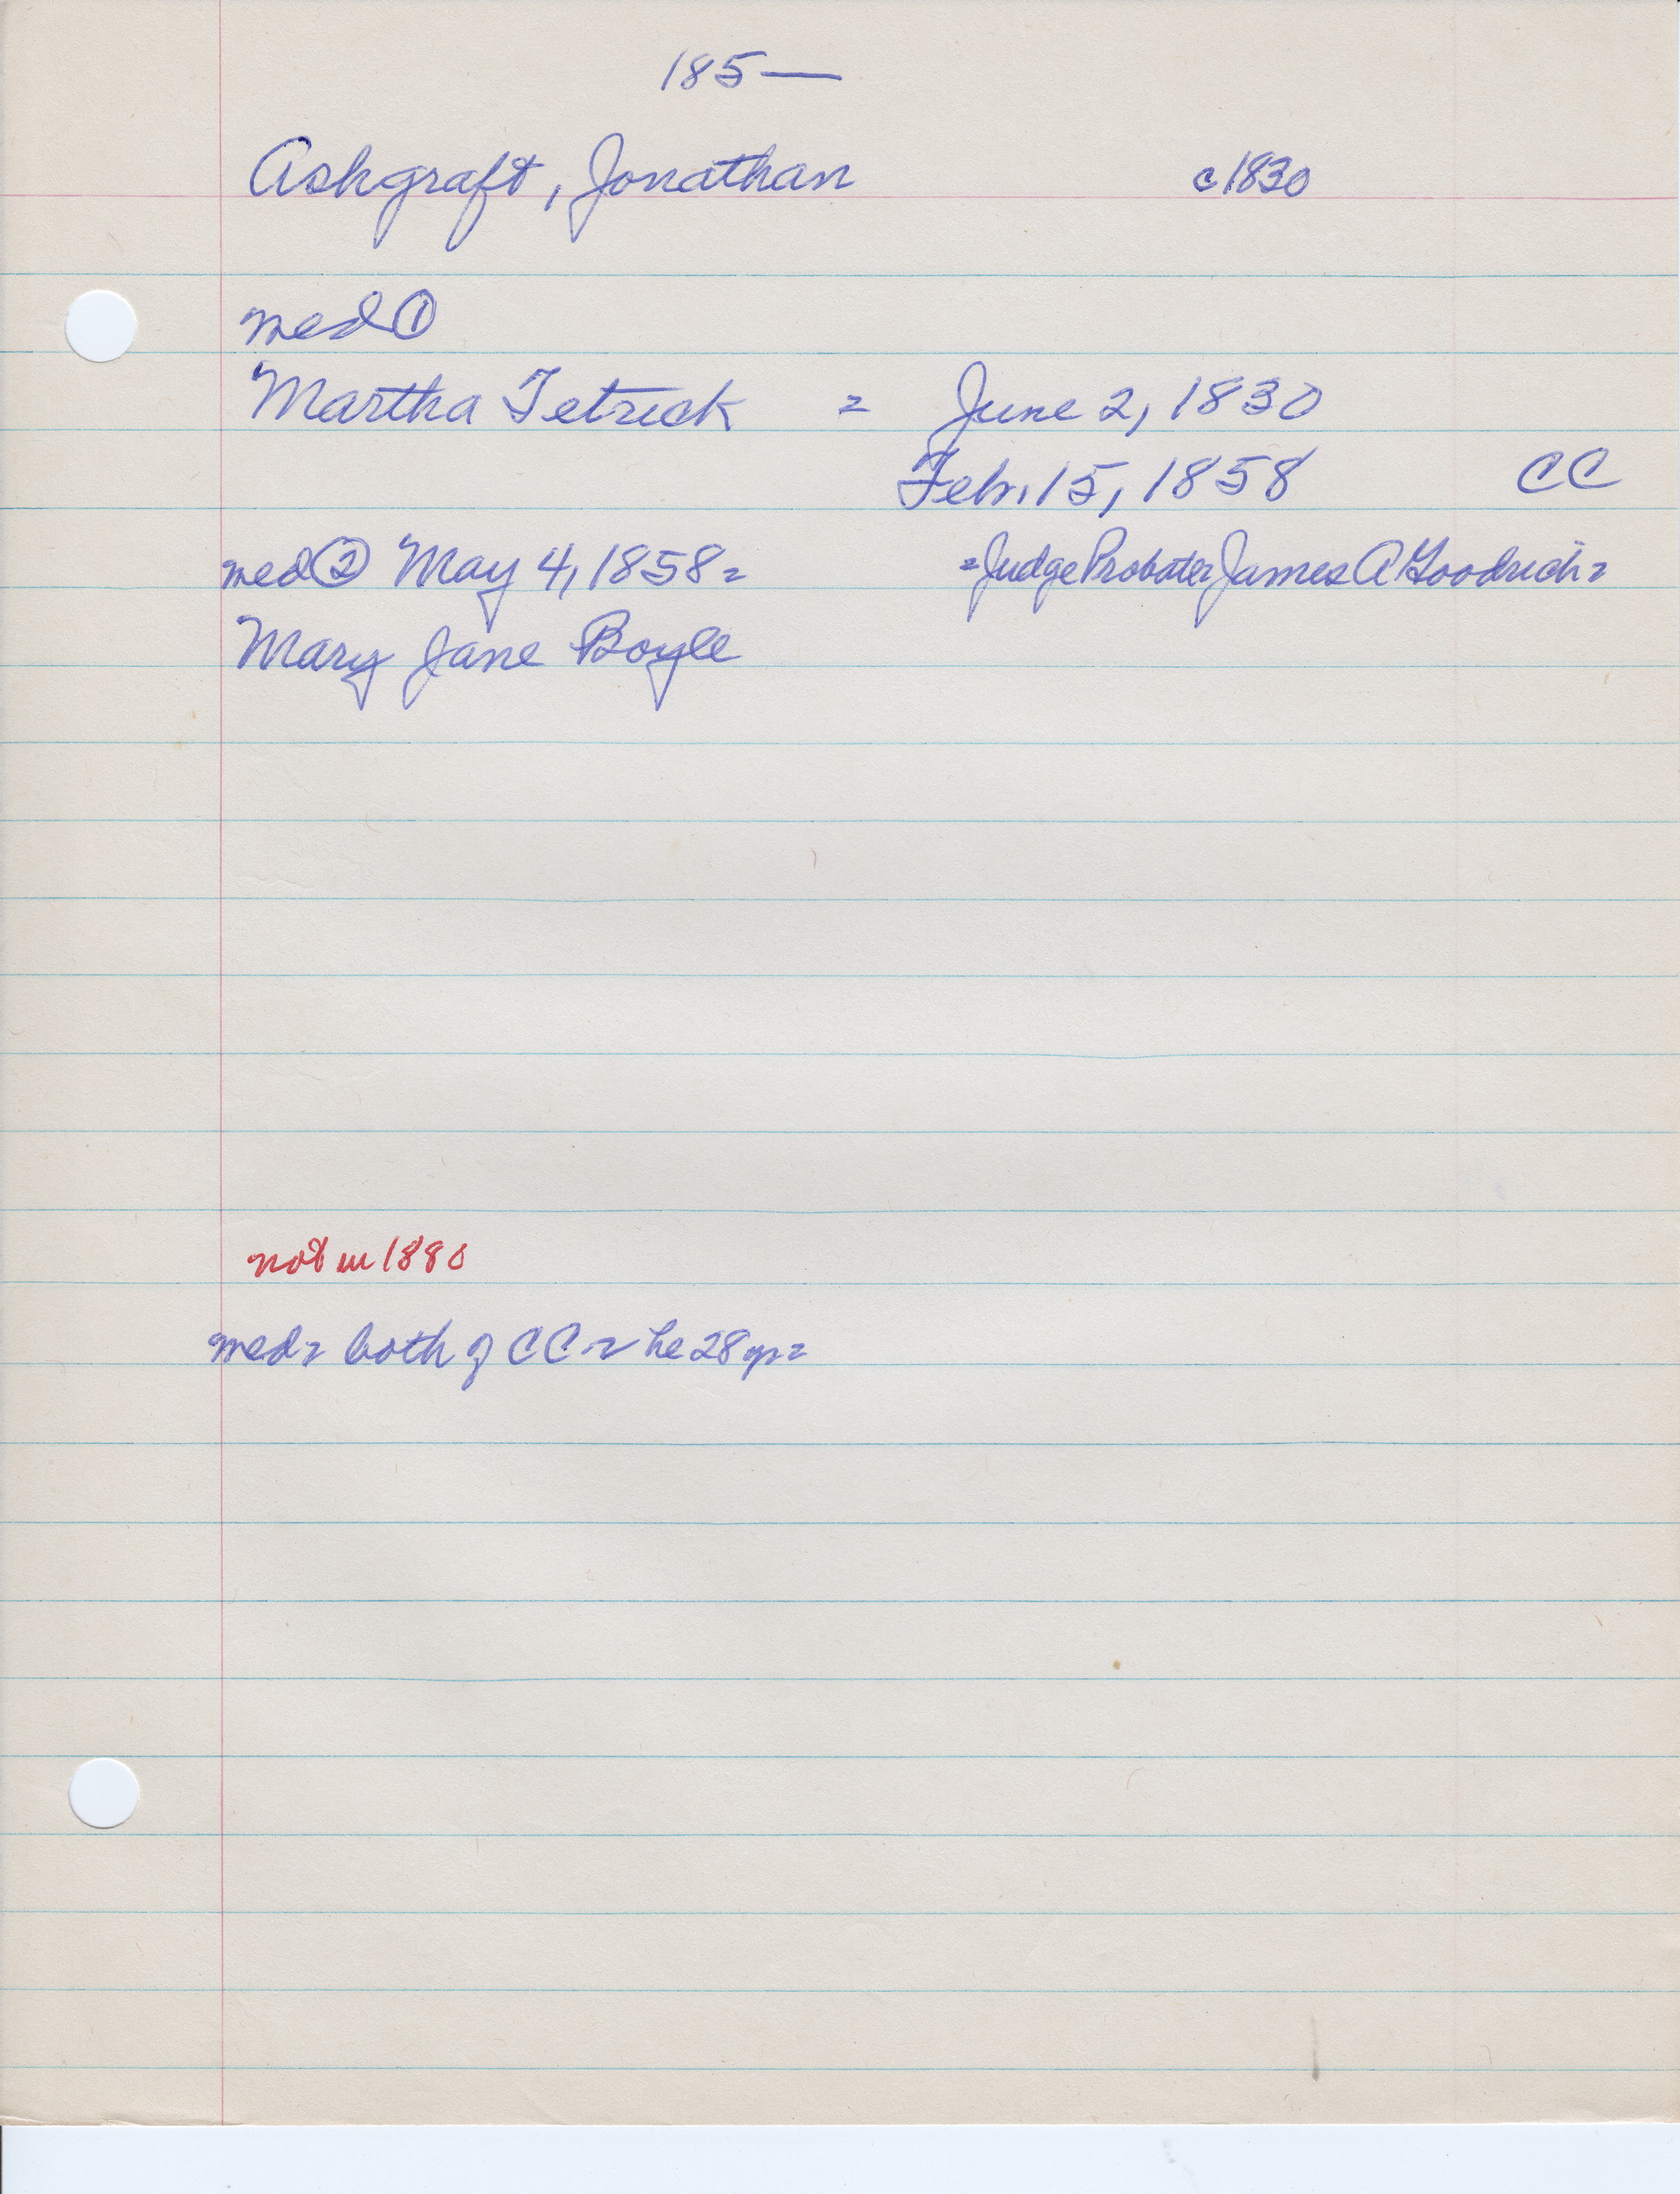 185—
Ashgraft, Jonathan c1830
med ①
Martha Tetrick = June 2, 1830
Feb. 15, 1858 CC
med ② May 4, 1858 = =Judge Probater James A Goodrich=
Mary Jane Boyle
not in 1880
med = both of CC = he 28 yr =